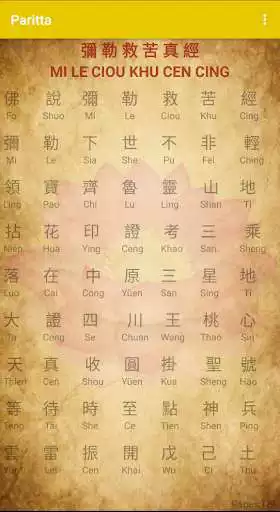 Paritta
彌勒救苦真經
MI LE CIOU KHU CEN CING
佛 說 彌 勒 救 苦 經
Fo Shuo Mi Le Ciou Khu Cing
彌 勒 下 世 不 非 輕
Mi Le Sia She Pu Fei Ching
領 寶 齊 魯 靈 山 地
Ling Pao Chi Lu Ling Shan Ti
拈 花 印 證 考 三 乘
Nien Hua Ying Ceng Khao San Sheng
落 在 中 原 三 星 地
Luo Cai Cong Yüen San Sing Ti
大 證 四 川 王 桃 心
Ta Ceng Se Chuan Wang Thao Sin
天 真 收 圓 掛 聖 號
Thien Cen Shou Yüen Kua Sheng Hao
等 待 時 至 點 神 兵
Teng Tai She Ce Tien Shen Ping
雲 雷 振 開 戊 己 土
Yün Lei Cen Khai Wu Ci Thu